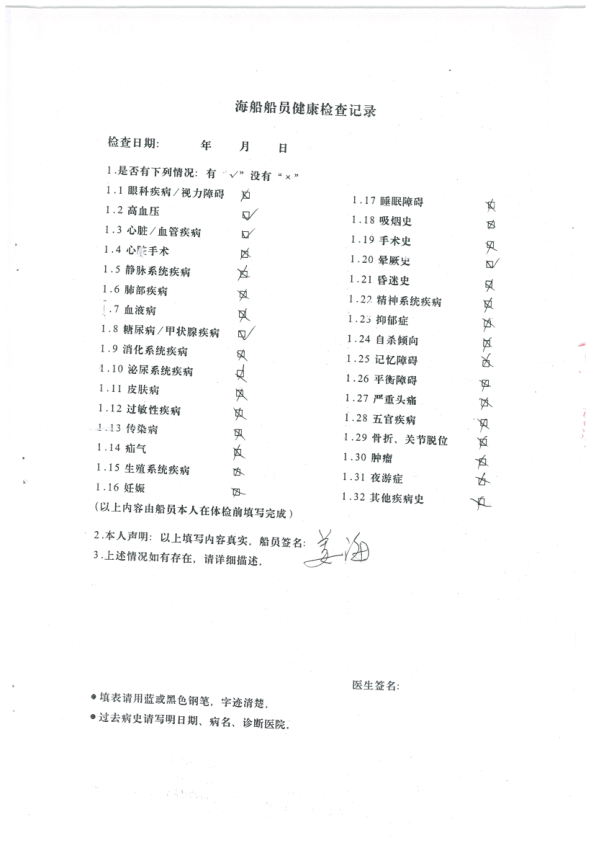 海船船员健康检查记录
检查日期： 年 月 日
1.是否有下列情况：有“√”没有“×”
1.1 眼科疾病/视力障碍 ×
1.2 高血压 √
1.3 心脏/血管疾病 √
1.4 心脏手术 ×
1.5 静脉系统疾病 ×
1.6 肺部疾病 ×
1.7 血液病 ×
1.8 糖尿病/甲状腺疾病 √
1.9 消化系统疾病 ×
1.10 泌尿系统疾病 ×
1.11 皮肤病 ×
1.12 过敏性疾病 ×
1.13 传染病 ×
1.14 疝气 ×
1.15 生殖系统疾病 ×
1.16 妊娠 ×
1.17 睡眠障碍 ×
1.18 吸烟史 ×
1.19 手术史 ×
1.20 晕厥史 √
1.21 昏迷史 ×
1.22 精神系统疾病 ×
1.23 抑郁症 ×
1.24 自杀倾向 ×
1.25 记忆障碍 ×
1.26 平衡障碍 ×
1.27 严重头痛 ×
1.28 五官疾病 ×
1.29 骨折、关节脱位 ×
1.30 肿瘤 ×
1.31 夜游症 ×
1.32 其他疾病史 ×
(以上内容由船员本人在体检前填写完成)
2.本人声明：以上填写内容真实．船员签名： 姜海
3.上述情况如有存在，请详细描述．
医生签名：
●填表请用蓝或黑色钢笔，字迹清楚．
●过去病史请写明日期、病名、诊断医院．